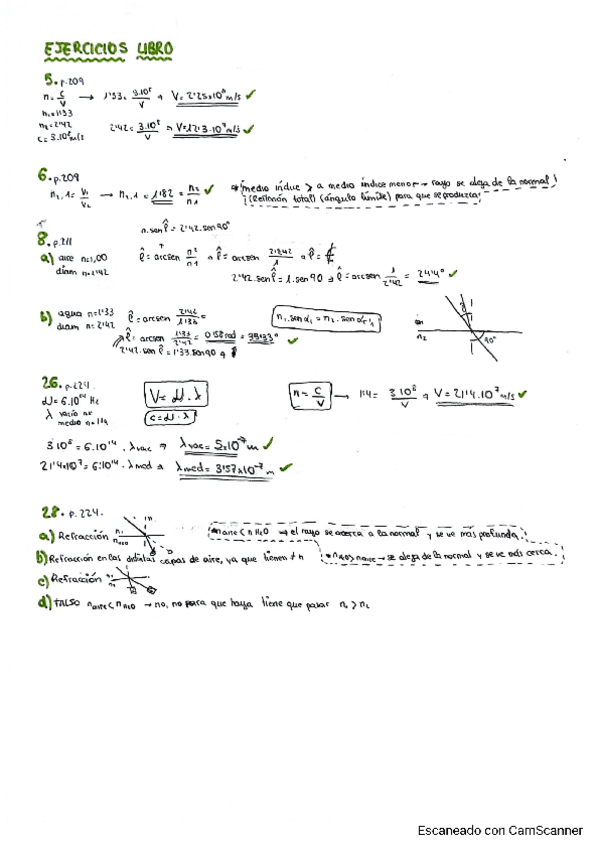 EJERCICIOS LIBRO
5. p.209
n = c/v → 1'33 = 3·10⁸/v → V = 2'25x10⁸ m/s ✓
n₁ = 1'33
n₂ = 2'42
c = 3·10⁸ m/s
2'42 = 3·10⁸/v
6. p.209
n₂,₁ = v₁/v₂ → n₂,₁ = 1'82 = n₂/n₁ ✓
medio índice > a medio índice menor → rayo se aleja de la normal
(Reflexión total) (ángulo límite) para que se produzca
n.sen l̂ = 2'42.sen90º
8. p.211
a) aire n=1,00
diam n=2'42
l̂ = arcsen n²/n¹
l̂ = arcsen 2'42/1
2'42.sen l̂ = 1.sen 90 → l̂ = arcsen 1/2'42 = 24'4º ✓
b) agua n=1'33
diam n=2'42
l̂ = arcsen 2'42/1'33 =
n₁.sen
l̂ = arcsen 1'33/2'42 = 0'58rad = ✓
2'42.sen l̂ = 1'33.sen90
n₂
90º
26. p.224.
= 6.10¹⁴ Hz
λ vacío
medio n=1'4
c =
n = c/v → 1'4 = 3·10⁸/v → V = 21'4.10⁷ m/s ✓
3·10⁸ = 6.10¹⁴ . λvac → λvac = 5x10⁻⁷ m ✓
21'4x10⁷ = 6·10¹⁴ . λmed → λmed = 3'57x10⁻⁷ m ✓
28. p.224.
a) Refracción
naire < nH₂O → el rayo se acerca a la normal y se ve más profunda.
b) Refracción en las distintas capas de aire, ya que tienen ≠ n
nH₂O > naire → se aleja de la normal y se ve más cerca.
c) Refracción
d) FALSO naire < nH₂O → no, no para que haya tiene que pasar n₁ > n₂
Escaneado con CamScanner